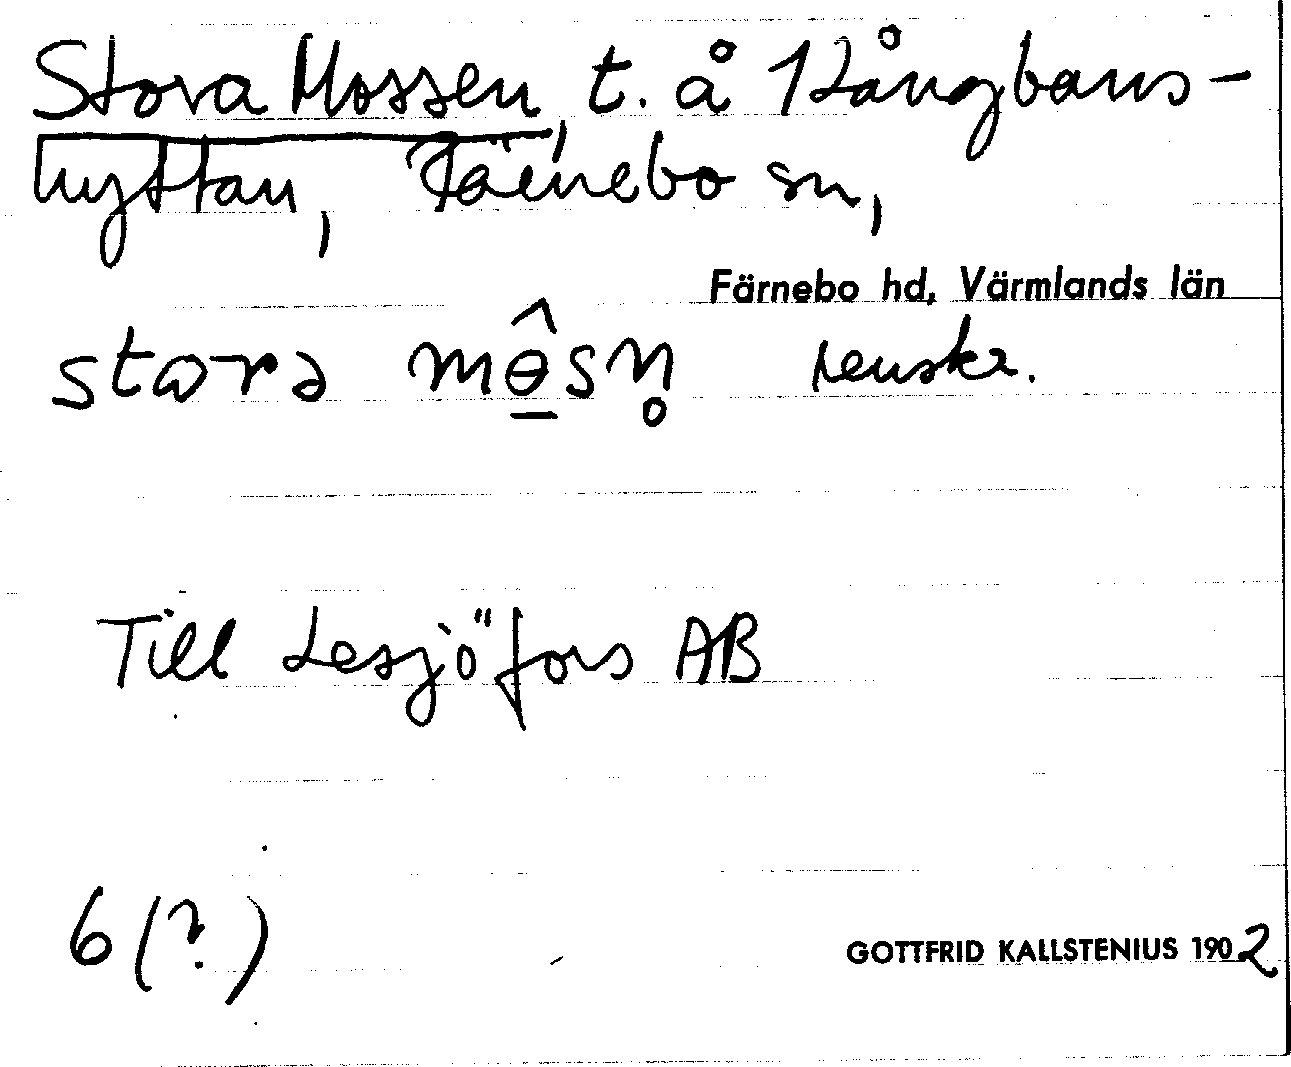 Stora Mossen, t. å 1 Långbans-
hyttan, Färnebo sn,
Färnebo hd, Värmlands län
stɷrə mɵ̂sn̥
Till Lesjöfors AB
6 (?)
GOTTFRID KALLSTENIUS 1902